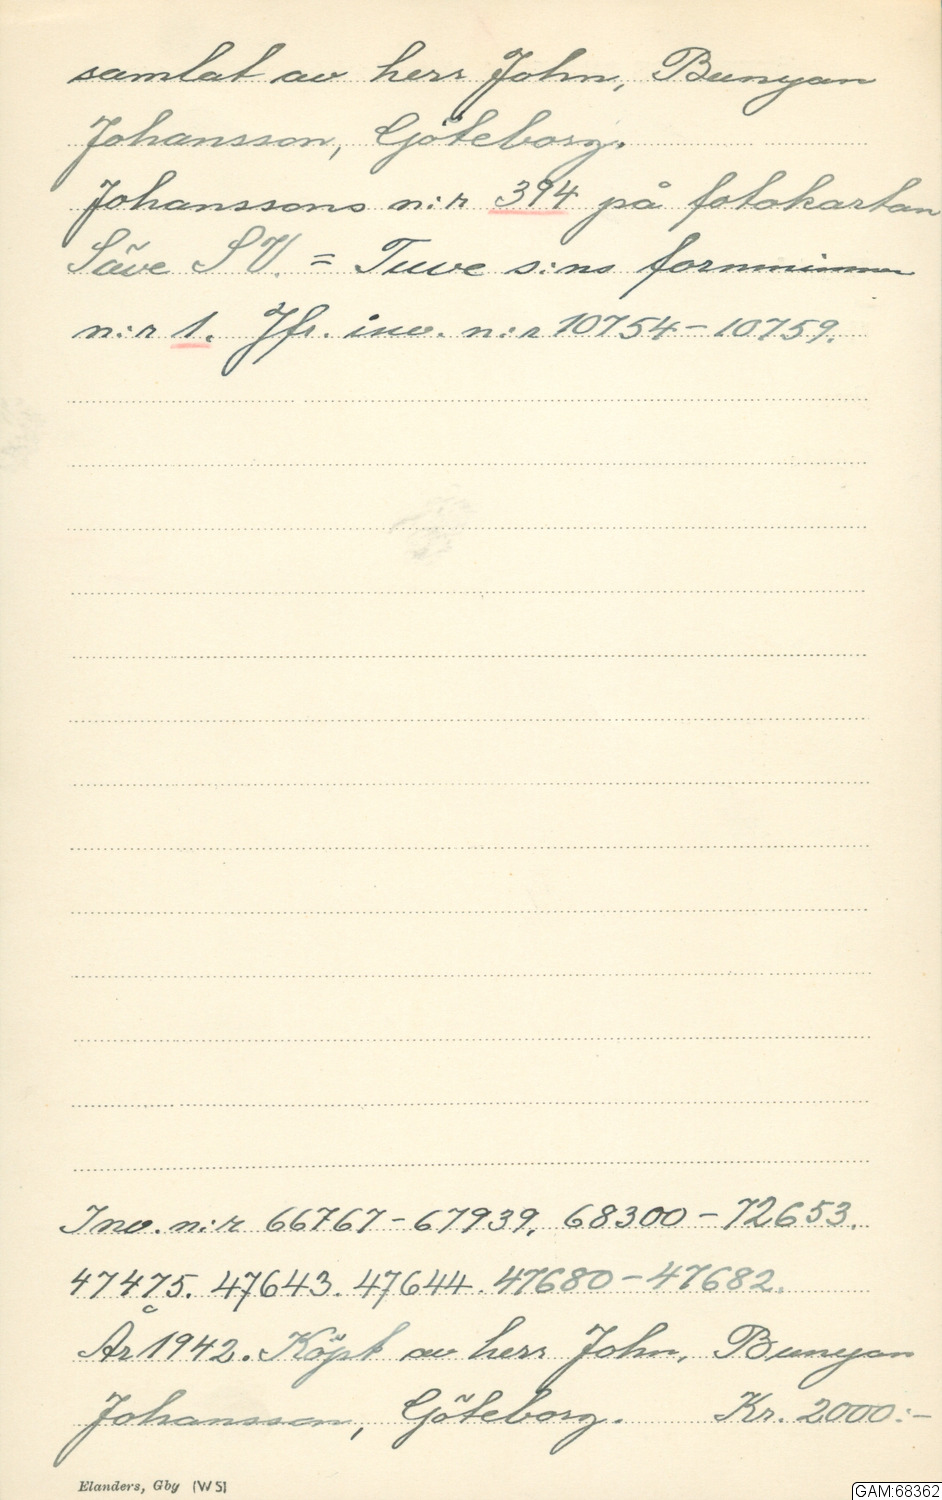 samlat av herr John, Bunyan
Johansson, Göteborg.
Johanssons n:r 394 på fotokartan
Säve SV. = Tuve s:ns fornminnen
n:r 1. Jfr. inv. n:r 10754-10759.
Inv. n:r 66767-67939, 68300-72653.
47475. 47643. 47644. 47680-47682.
År 1942. Köpt av herr John, Bunyan
Johansson, Göteborg. Kr. 2000:-
Elanders, Gby (W5)
GAM:68362